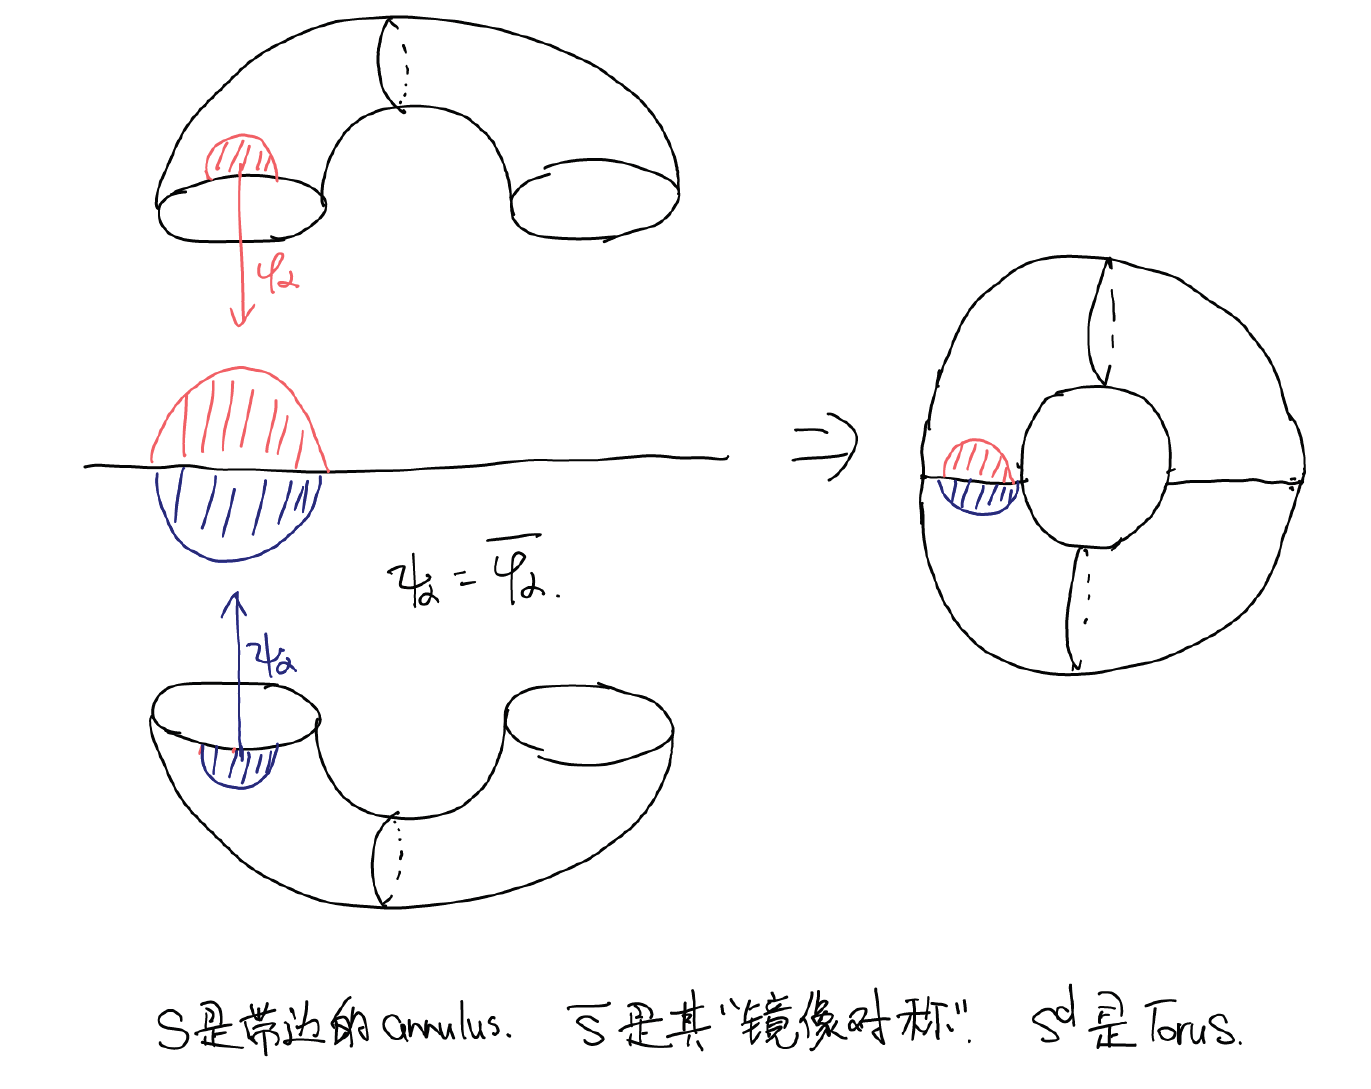 φ₂
ψ₂ = \overline{φ₂}.
ψ₂
S是带边的annulus. S̅是其“镜像对称”. Sᵈ是Torus.